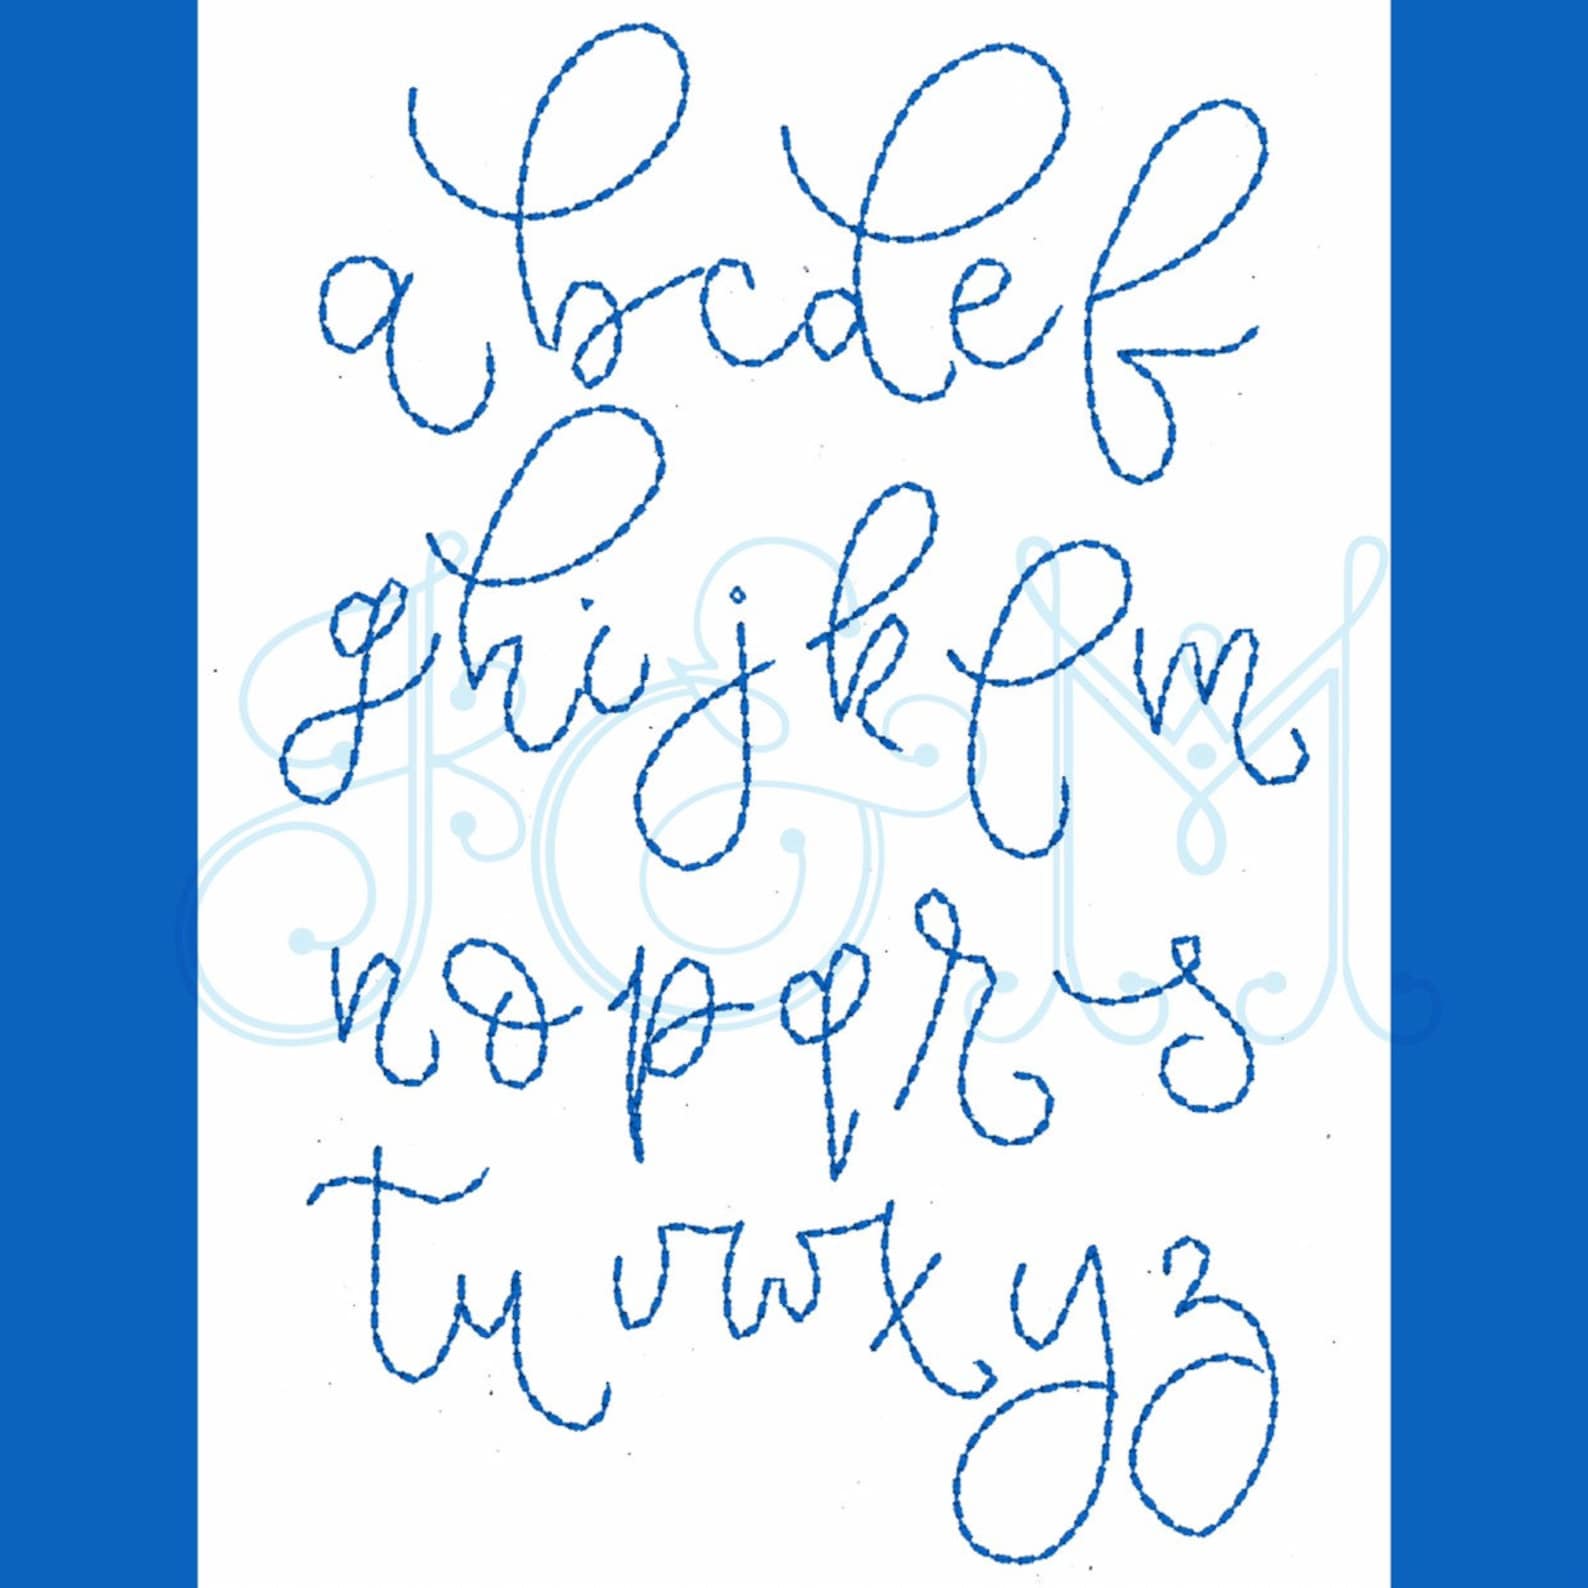 abcdef
ghijklm
nopqrs
tuvwxyz
J&M